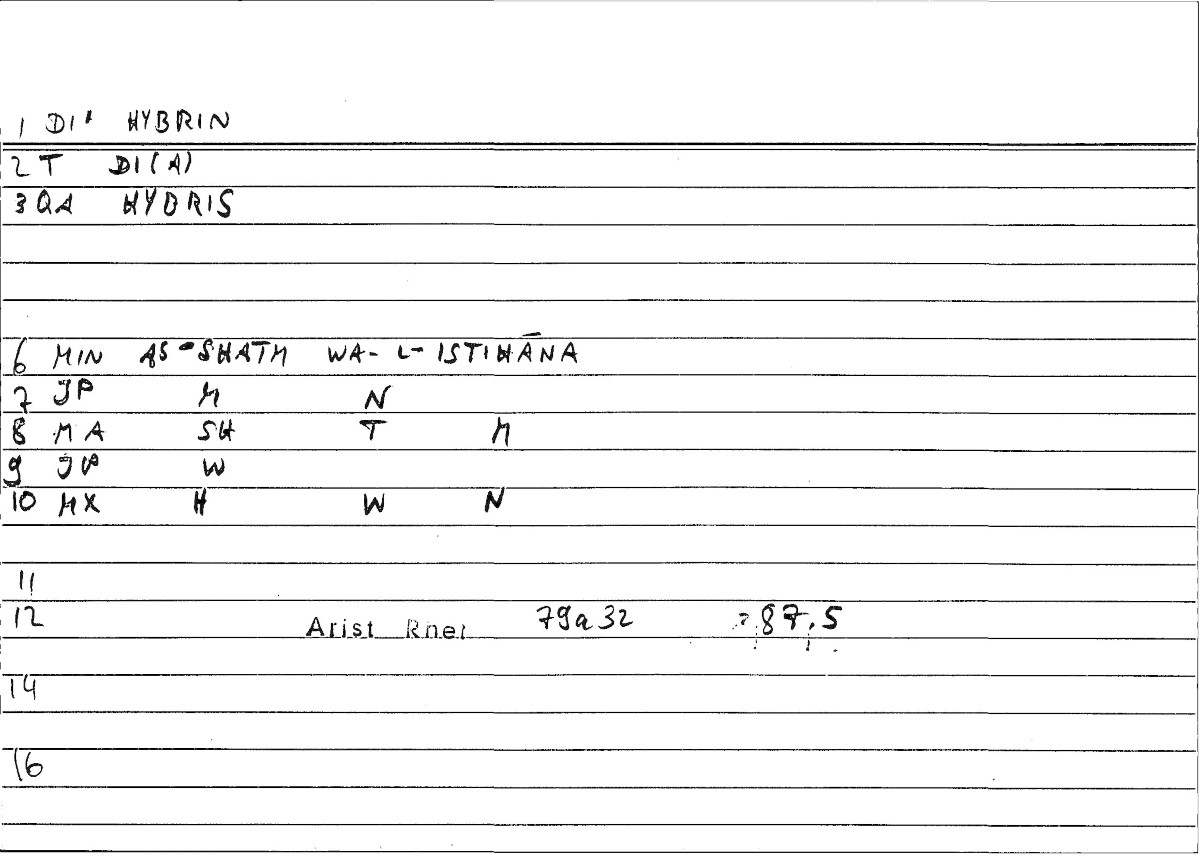 1 DI' HYBRIN
2 T DI(A)
3 QA HYBRIS
6 MIN AS-SHATM WA-L-ISTIHĀNA
7 JP M N
8 MA SH T M
9 JP W
10 MX H W N
11
12 Arist Rhet 79a32 287,5
14
16